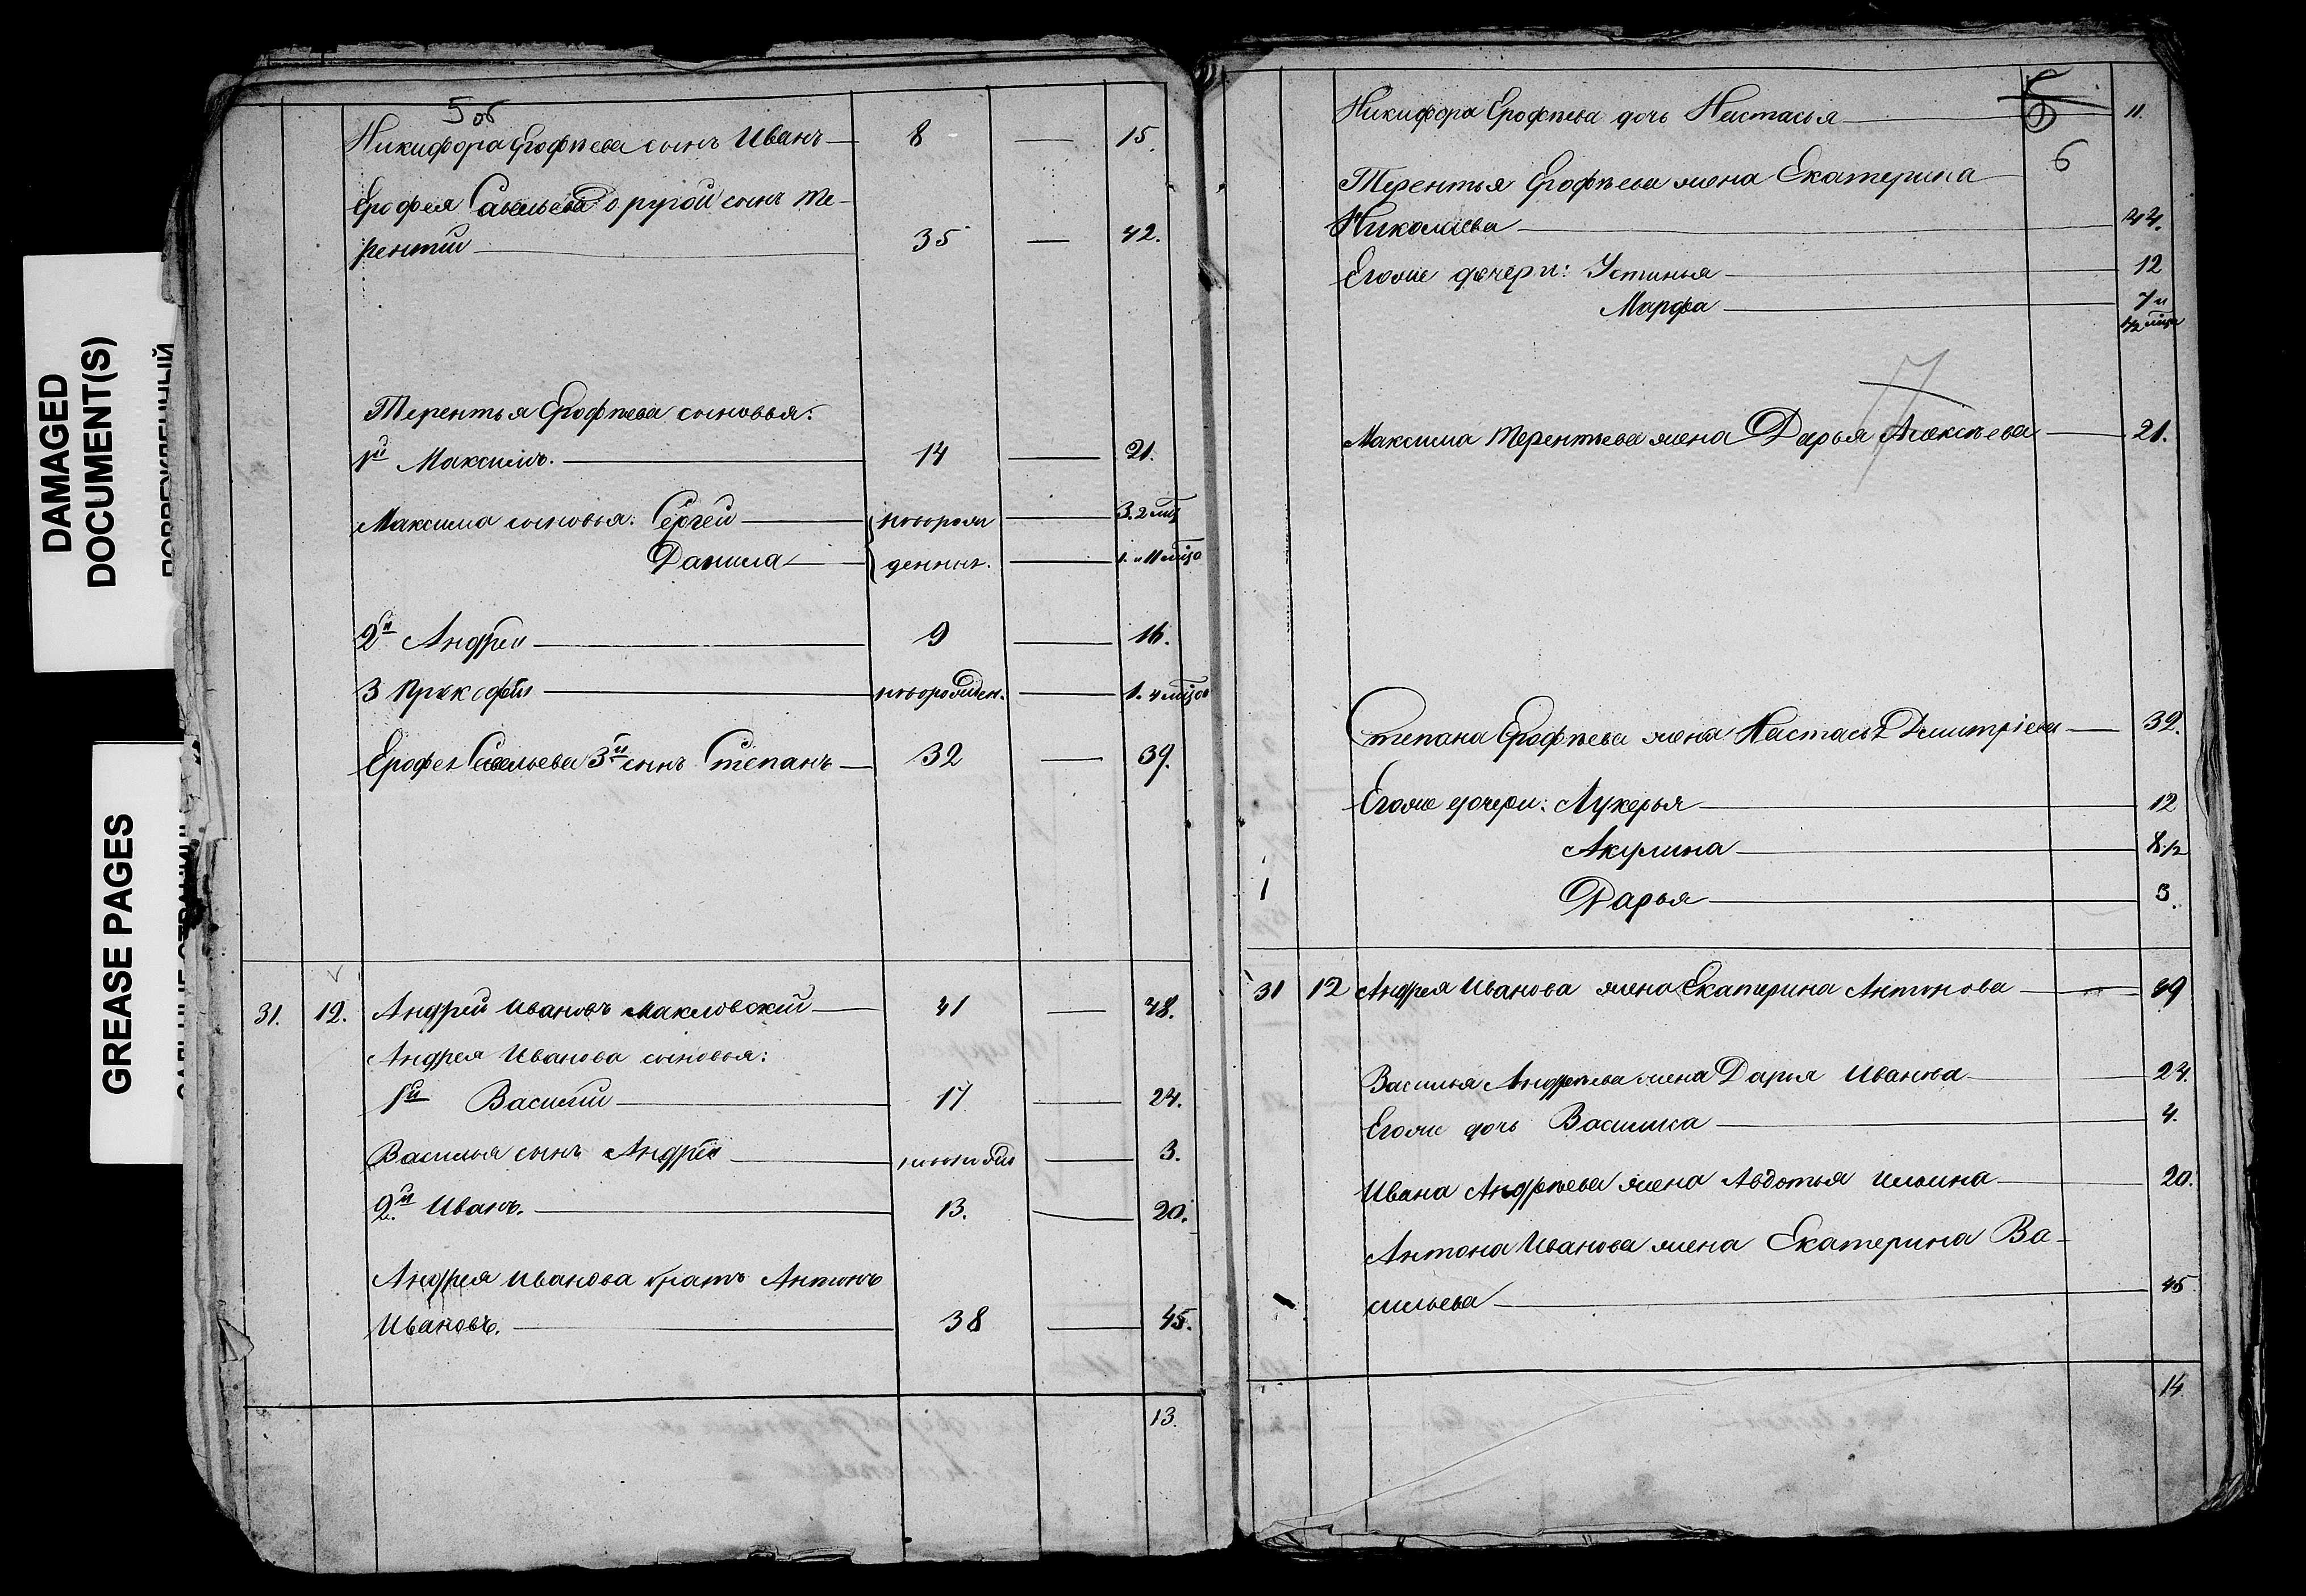 DAMAGED
DOCUMENT(S)
GREASE PAGES
5 об
Никифора Ерофѣева сынъ Иванъ 8 — 15.
Ерофея Савельева другой сынъ Те-
рентий 35 — 42.
Терентья Ерофѣева сыновья:
1й Максимъ. 14 — 21.
Максима сыновья: Сергей новорож — 3. 2 мц
Данила денных. — 1. и 11 мцо
2й Андрей 9 — 16.
3 Пракофѣй новорожден. — 1. 4 мцов
Ерофея Савельева 3й сынъ Степанъ 32 — 39.
31. 12. Андрей Ивановъ Макловский 41 — 48.
Андрея Иванова сыновья:
1й Василий 17 — 24.
Василья сынъ Андрей — 3.
2й Иванъ. 13. — 20.
Андрея Иванова братъ Антонъ
Ивановъ. 38 — 45.
13.
Никифора Ерофѣева дочь Настасья 11.
6
Терентья Ерофѣева жена Екатерина
Николаева 44.
Егоже дочери: Устинья 12
Марфа 7 и
1/2 мца
7
Максима Терентьева жена Дарья Алексѣева 21.
Степана Ерофѣева жена Настасья Дмитріева 39.
Егоже дочери: Лукерья 12
Акулина 8 1/2
1 Дарья 3.
31 12 Андрея Иванова жена Екатерина Антонова 49
Василья Андрѣева жена Дарья Иванова 24.
Егоже дочь Василиса 4.
Ивана Андрѣева жена Авдотья Ильина 20.
Антона Иванова жена Екатерина Ва-
сильева 45
14